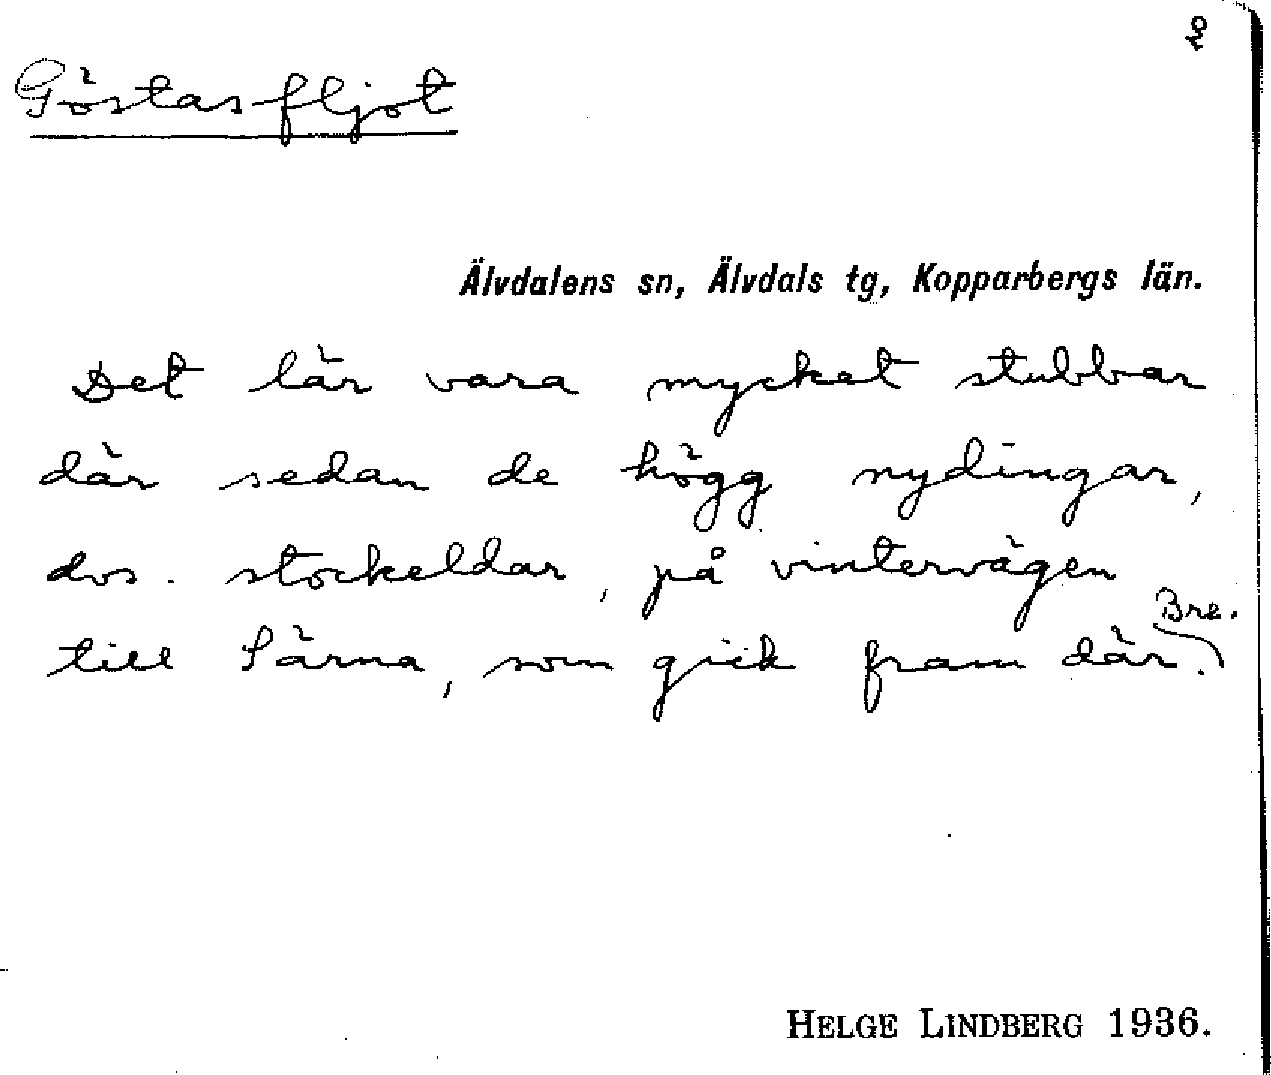 2
Göstasfljot
Älvdalens sn, Älvdals tg, Kopparbergs län.
Det lär vara mycket stubbar
där sedan de högg nydingar,
dvs. stockeldar, på vintervägen
Bre.
till Särna, som gick fram där.
HELGE LINDBERG 1936.